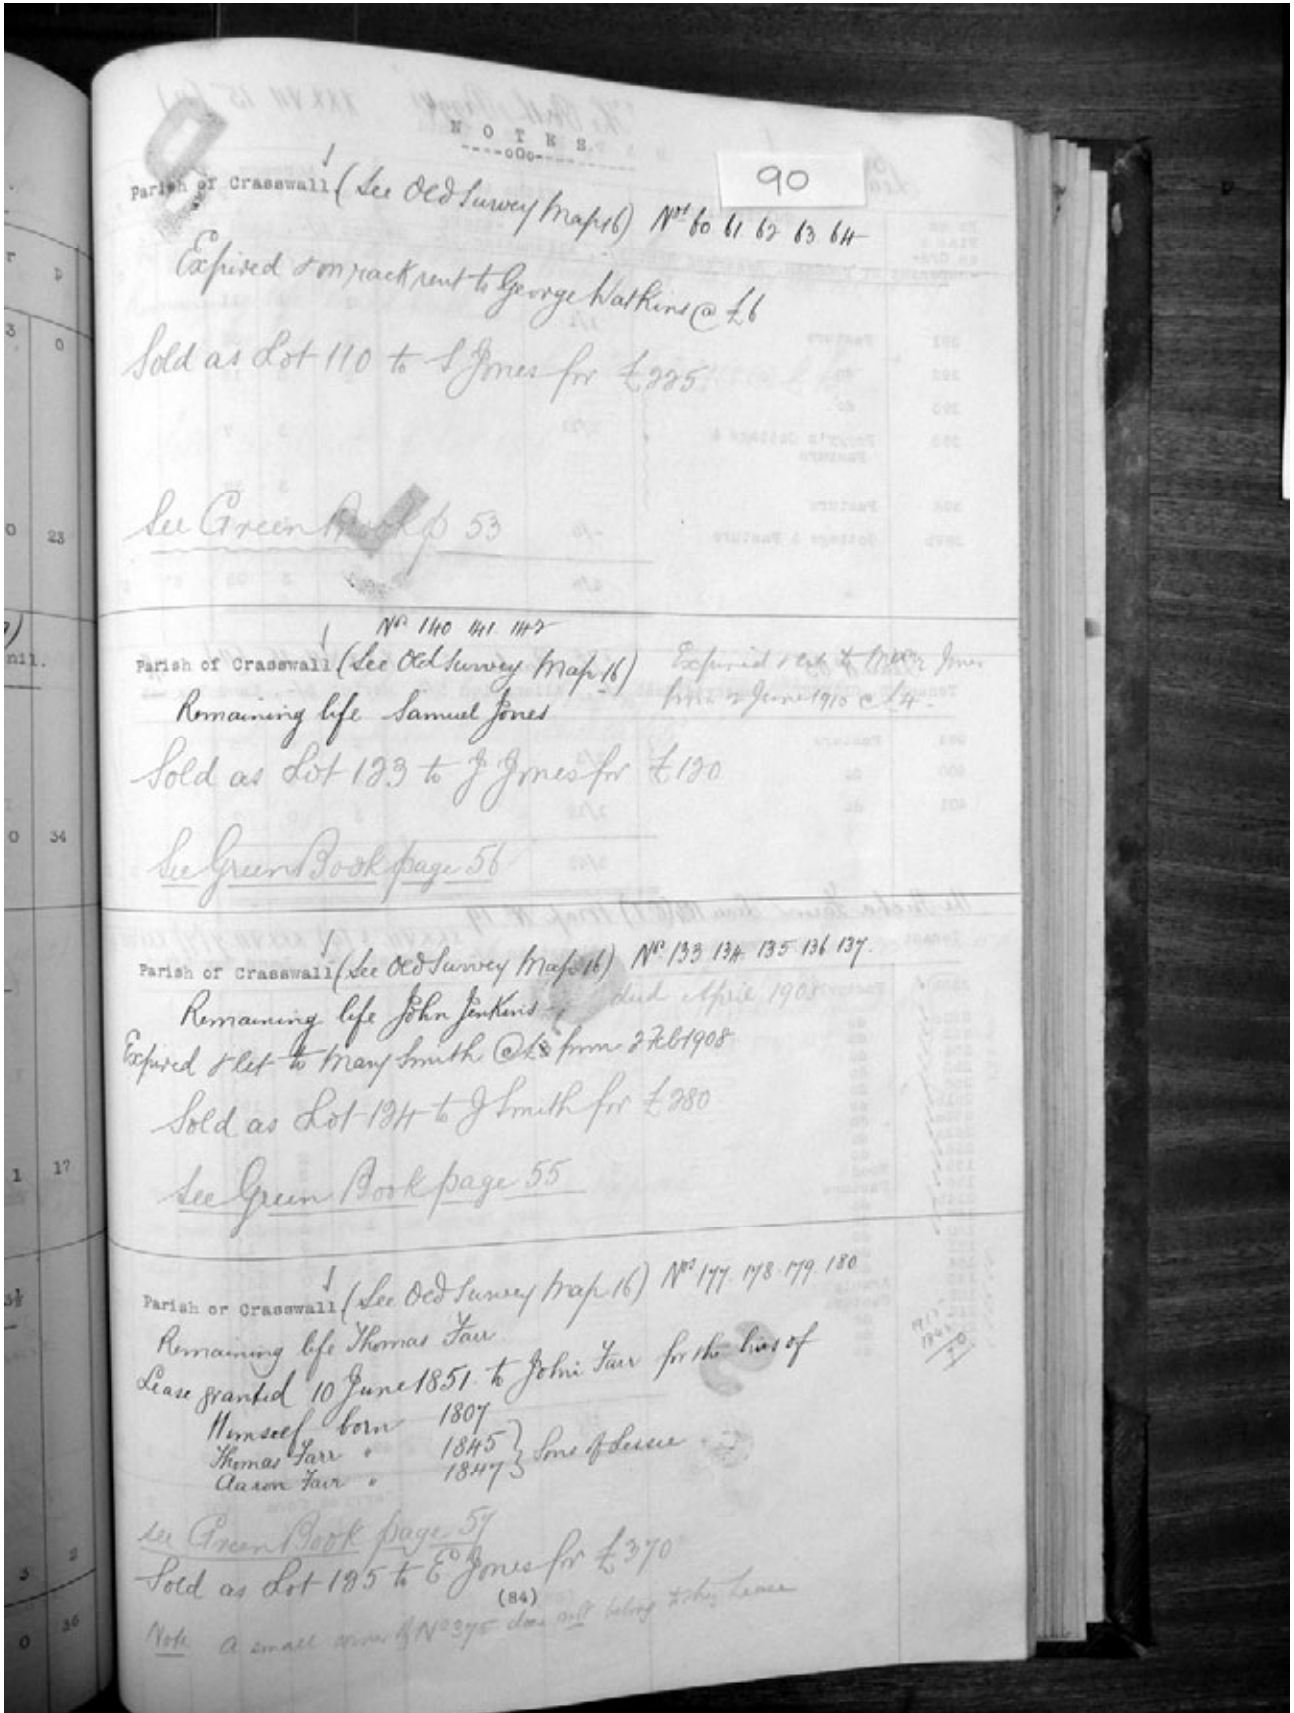 NOTES
----oOo----
90
Parish of Crasswall (See Old Survey Map 16) Nos 60 61 62 63 64
Expired & on rack rent to George Watkins @ £6
Sold as Lot 110 to S Jones for £225
See Green Book p 53
Nos 140 141 142
Parish of Crasswall (See Old Survey Map 16)
Expired & let to Jones
from 2 June 1910 @ £4
Remaining life Samuel Jones
Sold as Lot 123 to J Jones for £120
See Green Book page 56
Parish of Crasswall (See Old Survey Map 16) Nos 133 134 135 136 137.
Remaining life John Jenkins died April
Expired & let to Mary Smith @ from 2 Feb 1908
Sold as Lot 124 to J Smith for £280
See Green Book page 55
Parish or Crasswall (See Old Survey Map 16) Nos 177. 178. 179. 180
Remaining life Thomas Farr
Lease granted 10 June 1851 to John Farr for the lives of
Himself born 1807
Thomas Farr " 1845 } Sons of Lessee
Aaron Farr " 1847
see Green Book page 57
Sold as Lot 125 to E Jones for £370
(84)
Note A small corner of No 375 does not belong to this Lease
23
nil.
34
17
2
36